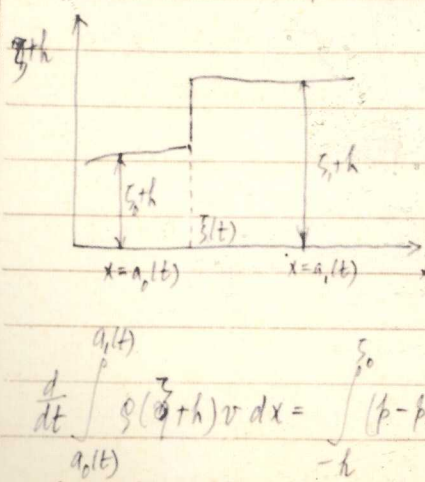 ζ+h
ζ₀+h
ζ₁+h
ξ(t)
x=a₀(t)
x=a₁(t)
x
d/dt ∫_{a₀(t)}^{a₁(t)} ρ(ζ+h) v dx = ∫_{-h}^{ζ₀} (p-p